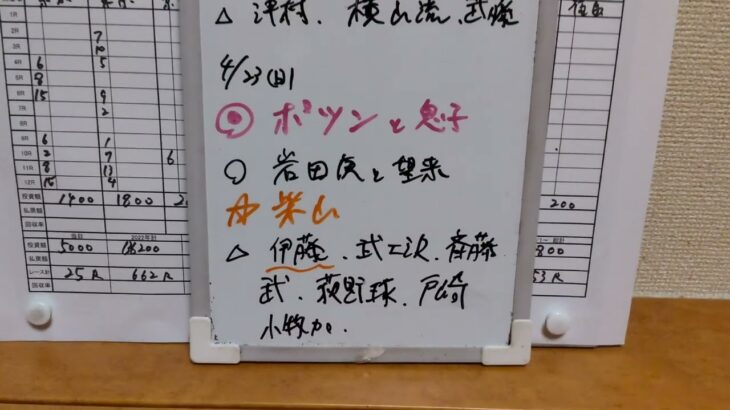 △ 津村、横山流、武藤
4/23(日)
◎ ポツンと息子
○ 岩田康と望来
☆ 柴山
△ 伊藤工、武士沢、斉藤
武、荻野球、戸崎
小牧加、
1R
2R 7
3R 10
4R 6 5
5R 8
6R 15 9
7R 2
8R
9R 6 1
10R 2 7 6
11R 8 13
12R 15 4
投資額 1400 1800
払戻額
回収率
2022年計
投資額 5000
払戻額
レース計 25R 662R
回収率
200
800
53R